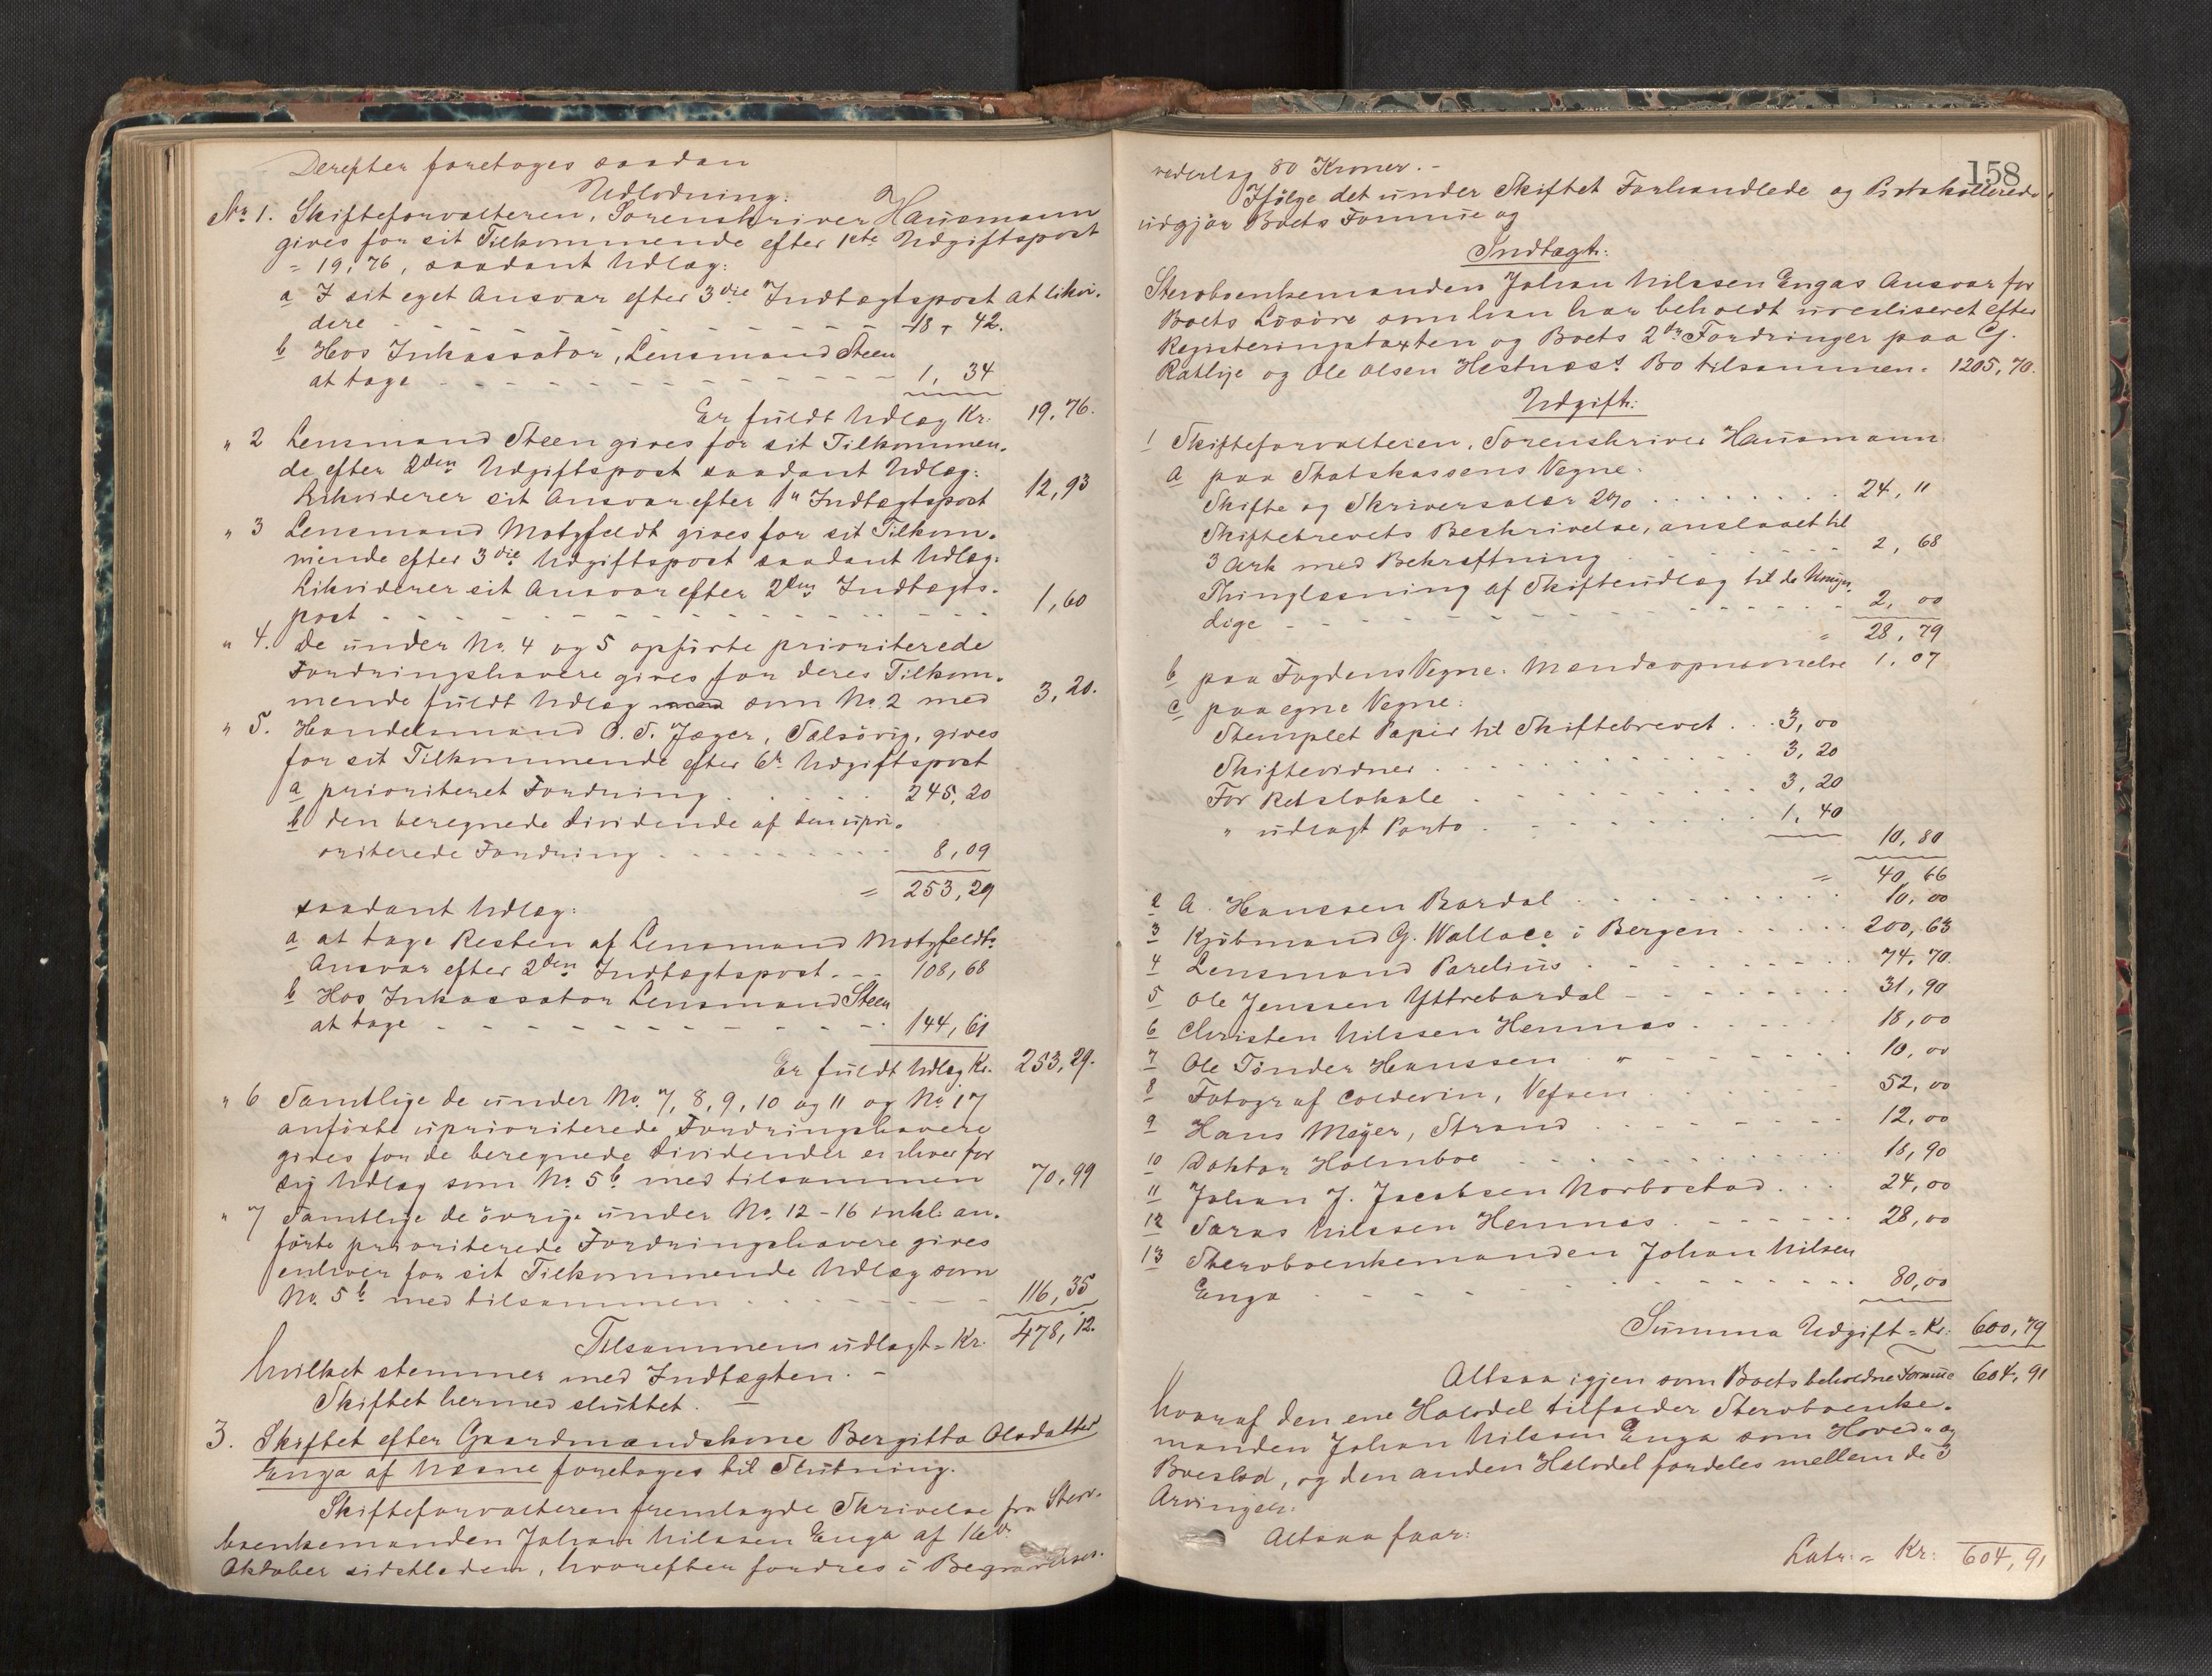 Derefter foretoges saadan
Udlodning:
No 1. Skifteforvalteren, Sorenskriver Hausmann
gives for sit Tilkommende efter 1ste Udgiftspost
= 19,76, saadant Udlæg:
a I sit eget Ansvar efter 3die Indtægtspost at likvi-
dere - - - 18, 42.
b Hos Inkassator, Lensmand Steen
at tage - - - 1, 34
Er fuldt Udlæg Kr. 19,76.
" 2 Lensmand Steen gives for sit Tilkommen-
de efter 2den Udgiftspost saadant Udlæg:
Likviderer sit Ansvar efter 1" Indtægtspost 12,93
" 3 Lensmand Motzfeldt gives for sit Tilkom-
mende efter 3die Udgiftspost saadant Udlæg:
Likviderer sit Ansvar efter 2den Indtægts-
post - - - 1,60
" 4. De under No. 4 og 5 opførte prioriterede
Fordringshavere gives for deres Tilkom-
mende fuldt Udlæg med som No. 2 med 3,20.
" 5. Handelsmand O. S. Jæger, Sælsvig, gives
for sit Tilkommende efter 6te Udgiftspost
a prioriteret Fordring . . . 245,20
b den beregnede Dividende af den upri-
oriterede Fordring . . . 8,09
= 253,29
saadant Udlæg:
a at tage Resten af Lensmand Motzfeldts
Ansvar efter 2den Indtægtspost. - - 108,68
b Hos Inkassator Lensmand Steen
at tage - - - 144,61
Er fuldt Udlæg Kr. 253,29.
" 6 Samtlige de under No. 7, 8, 9, 10 og 11 og No 17
anførte uprioriterede Fordringshavere
gives for de beregnede Dividender enhver for
sig Udlæg som No. 5b med tilsammen 70,99
" 7 Samtlige de øvrige under No. 12-16 inkl. an-
førte prioriterede Fordringshavere gives
enhver for sit Tilkommende Udlæg som
No. 5b med tilsammen - - - 116,35
Tilsammen udlagt = Kr. 478,12.
hvilket stemmer med Indtægten. -
Skiftet hermed sluttet. -
3. Skiftet efter Gaardmandskone Bergitta Olsdatter
Enga af Næsne foretoges til Slutning.
Skifteforvalteren fremlagde Skrivelse fra Sterv-
boenkemanden Johan Nilssen Enga af 16de
Oktober sidstleden, hvorefter fordres i Begravelses-
158
vederlag 80 Kroner. -
Ifølge det under Skiftet Forhandlede og Protokollerede
udgjør Boets Formue og
Indtægt:
Stervboenkemanden Johan Nilssen Engas Ansvar for
Boets Løsøre som han har beholdt urealiseret efter
Registeringstaxten og Boets 2de Fordringer paa Cj.
Ratlije og Ole Olsen Hestnæss Bo tilsammen = 1205,70.
Udgift:
1 Skifteforvalteren, Sorenskriver Hausmann
a paa Statskassens Vegne:
Skifte og Skriversalær 2% . . . 24, 11
Skiftebrevets Beskrivelse, anslaaet til
3 Ark med Bekræftning - - - 2, 68
Thinglæsning af Skifteudlæg til de Umyn-
dige - - - 2, 00
= 28, 79
b paa Fogdens Vegne: Mændsopnævnelse 1. 07
c paa egne Vegne:
Stemplet Papir til Skiftebrevet . . 3,00
Skiftevidner . . . 3,20
For Retslokale . . . 3,20
" udlagt Porto . . . 1,40
10,80
= 40,66
2 A. Hanssen Bardal . . . 10,00
3 Kjøbmand G. Wallace i Bergen . . . 200,63
4 Lensmand Parelius . . . 74,70.
5 Ole Jenssen Yttrebardal - - - 31,90
6 Christen Nilssen Hemnæs . . . 18,00
7 Ole Tønder Hanssen " - - - 10,00
8 Fotograf Coldevin, Vefsen . . . 52,00
9 Hans Meyer, Strand . . . 12,00
10 Doktor Holmboe - - - 18,90
11 Johan J. Jacobsen Norbostad . . . 24,00
12 Saras Nilssen Hemnæs . . . 28,00
13 Stervboenkemanden Johan Nilsen
Enga - - - 80,00
Summa Udgift = Kr: 600,79
Altsaa igjen som Boets beholdne Formue 604,91
hvoraf den ene Halvdel tilfalder Stervboenke-
manden Johan Nilsen Enga som Hoved- og
Boeslod, og den anden Halvdel fordeles mellem de 3
Arvinger.
Altsaa faar:
Latr. = Kr: 604,91